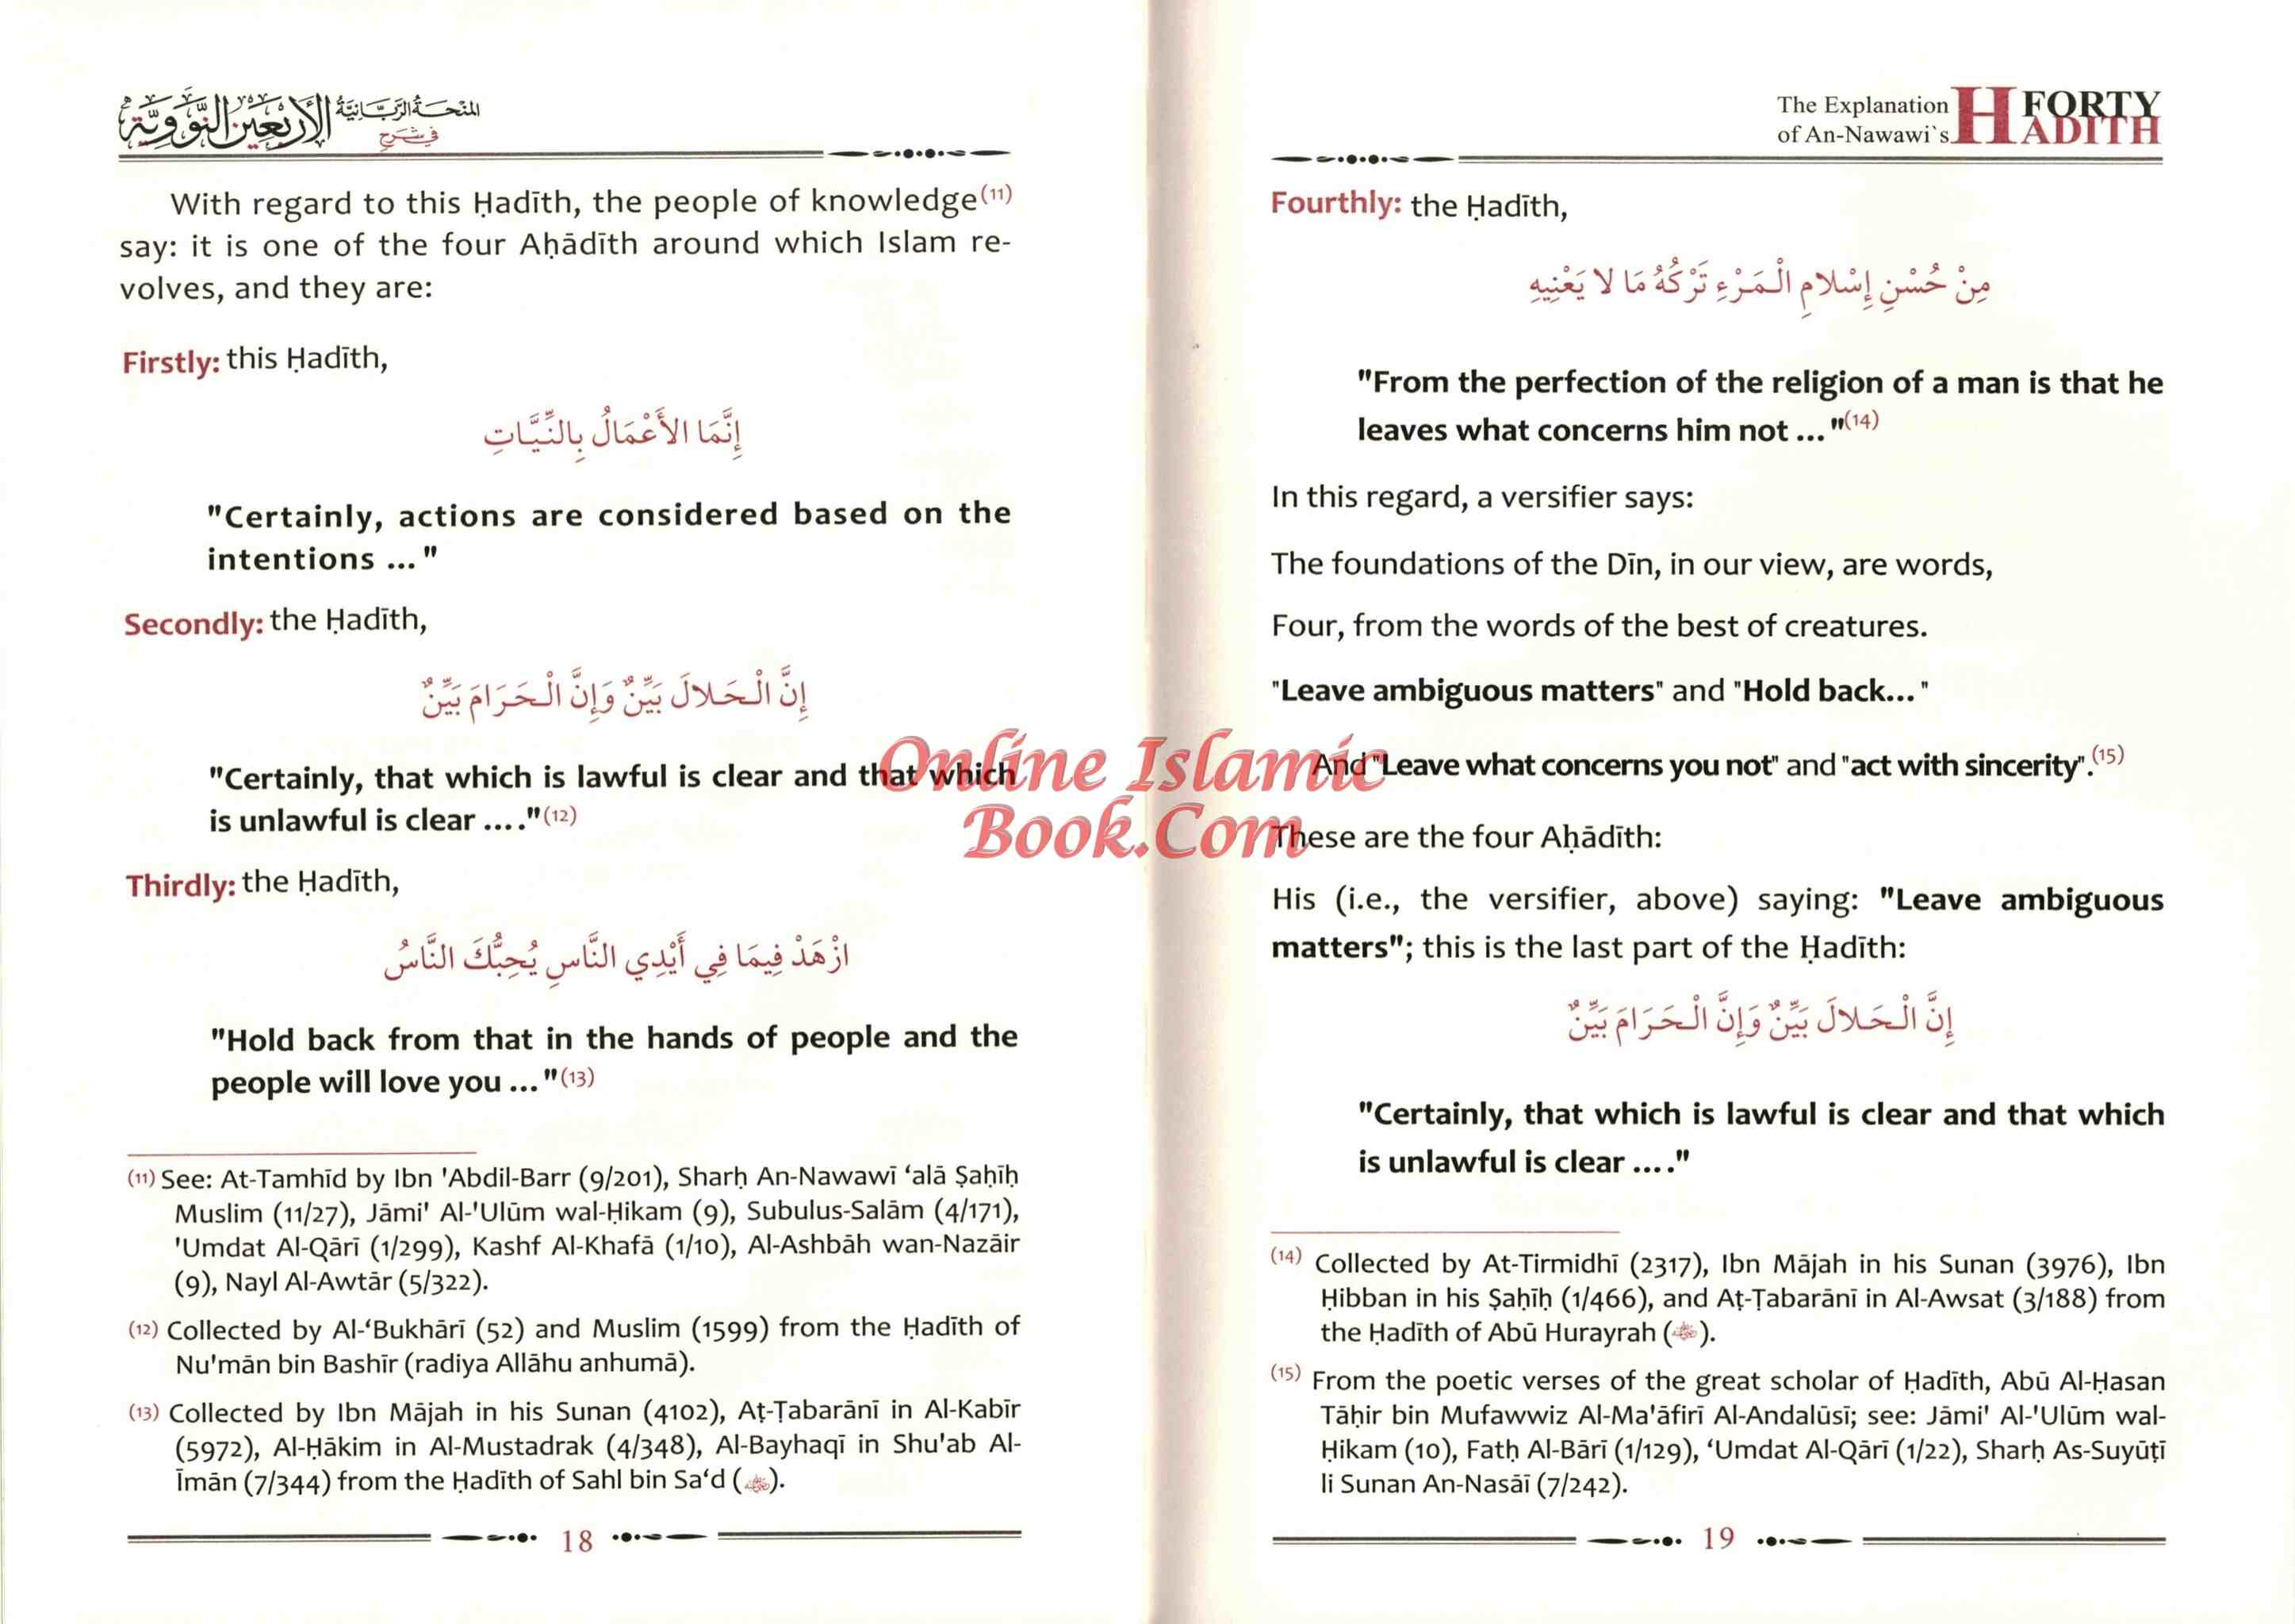 المنحة الربانية
في شرح
الأربعين النووية
With regard to this Ḥadīth, the people of knowledge(11)
say: it is one of the four Aḥādīth around which Islam re-
volves, and they are:
Firstly: this Ḥadīth,
إِنَّمَا الأَعْمَالُ بِالنِّيَّاتِ
"Certainly, actions are considered based on the
intentions ... "
Secondly: the Ḥadīth,
إِنَّ الْحَلالَ بَيِّنٌ وَإِنَّ الْحَرَامَ بَيِّنٌ
"Certainly, that which is lawful is clear and that which
is unlawful is clear ...."(12)
Thirdly: the Ḥadīth,
ازْهَدْ فِيمَا فِي أَيْدِي النَّاسِ يُحِبُّكَ النَّاسُ
"Hold back from that in the hands of people and the
people will love you ... "(13)
(11) See: At-Tamhīd by Ibn 'Abdil-Barr (9/201), Sharḥ An-Nawawī ‘alā Ṣaḥīḥ
Muslim (11/27), Jāmi' Al-'Ulūm wal-Ḥikam (9), Subulus-Salām (4/171),
'Umdat Al-Qārī (1/299), Kashf Al-Khafā (1/10), Al-Ashbāh wan-Nazāir
(9), Nayl Al-Awtār (5/322).
(12) Collected by Al-‘Bukhārī (52) and Muslim (1599) from the Ḥadīth of
Nu'mān bin Bashīr (radiya Allāhu anhumā).
(13) Collected by Ibn Mājah in his Sunan (4102), Aṭ-Ṭabarānī in Al-Kabīr
(5972), Al-Ḥākim in Al-Mustadrak (4/348), Al-Bayhaqī in Shu'ab Al-
Īmān (7/344) from the Ḥadīth of Sahl bin Sa‘d (
).
18
The Explanation
of An-Nawawi`s
FORTY
HADITH
Fourthly: the Ḥadīth,
مِنْ حُسْنِ إِسْلامِ الْمَرْءِ تَرْكُهُ مَا لا يَعْنِيهِ
"From the perfection of the religion of a man is that he
leaves what concerns him not ... "(14)
In this regard, a versifier says:
The foundations of the Dīn, in our view, are words,
Four, from the words of the best of creatures.
"Leave ambiguous matters" and "Hold back... "
And "Leave what concerns you not" and "act with sincerity".(15)
These are the four Aḥādīth:
His (i.e., the versifier, above) saying: "Leave ambiguous
matters"; this is the last part of the Ḥadīth:
إِنَّ الْحَلالَ بَيِّنٌ وَإِنَّ الْحَرَامَ بَيِّنٌ
"Certainly, that which is lawful is clear and that which
is unlawful is clear ...."
(14) Collected by At-Tirmidhī (2317), Ibn Mājah in his Sunan (3976), Ibn
Ḥibban in his Ṣaḥīḥ (1/466), and Aṭ-Ṭabarānī in Al-Awsat (3/188) from
the Ḥadīth of Abū Hurayrah (
).
(15) From the poetic verses of the great scholar of Ḥadīth, Abū Al-Ḥasan
Tāḥir bin Mufawwiz Al-Ma'āfirī Al-Andalūsī; see: Jāmi' Al-'Ulūm wal-
Ḥikam (10), Fatḥ Al-Bārī (1/129), ‘Umdat Al-Qārī (1/22), Sharḥ As-Suyūṭī
li Sunan An-Nasāī (7/242).
19
Online Islamic
Book.Com